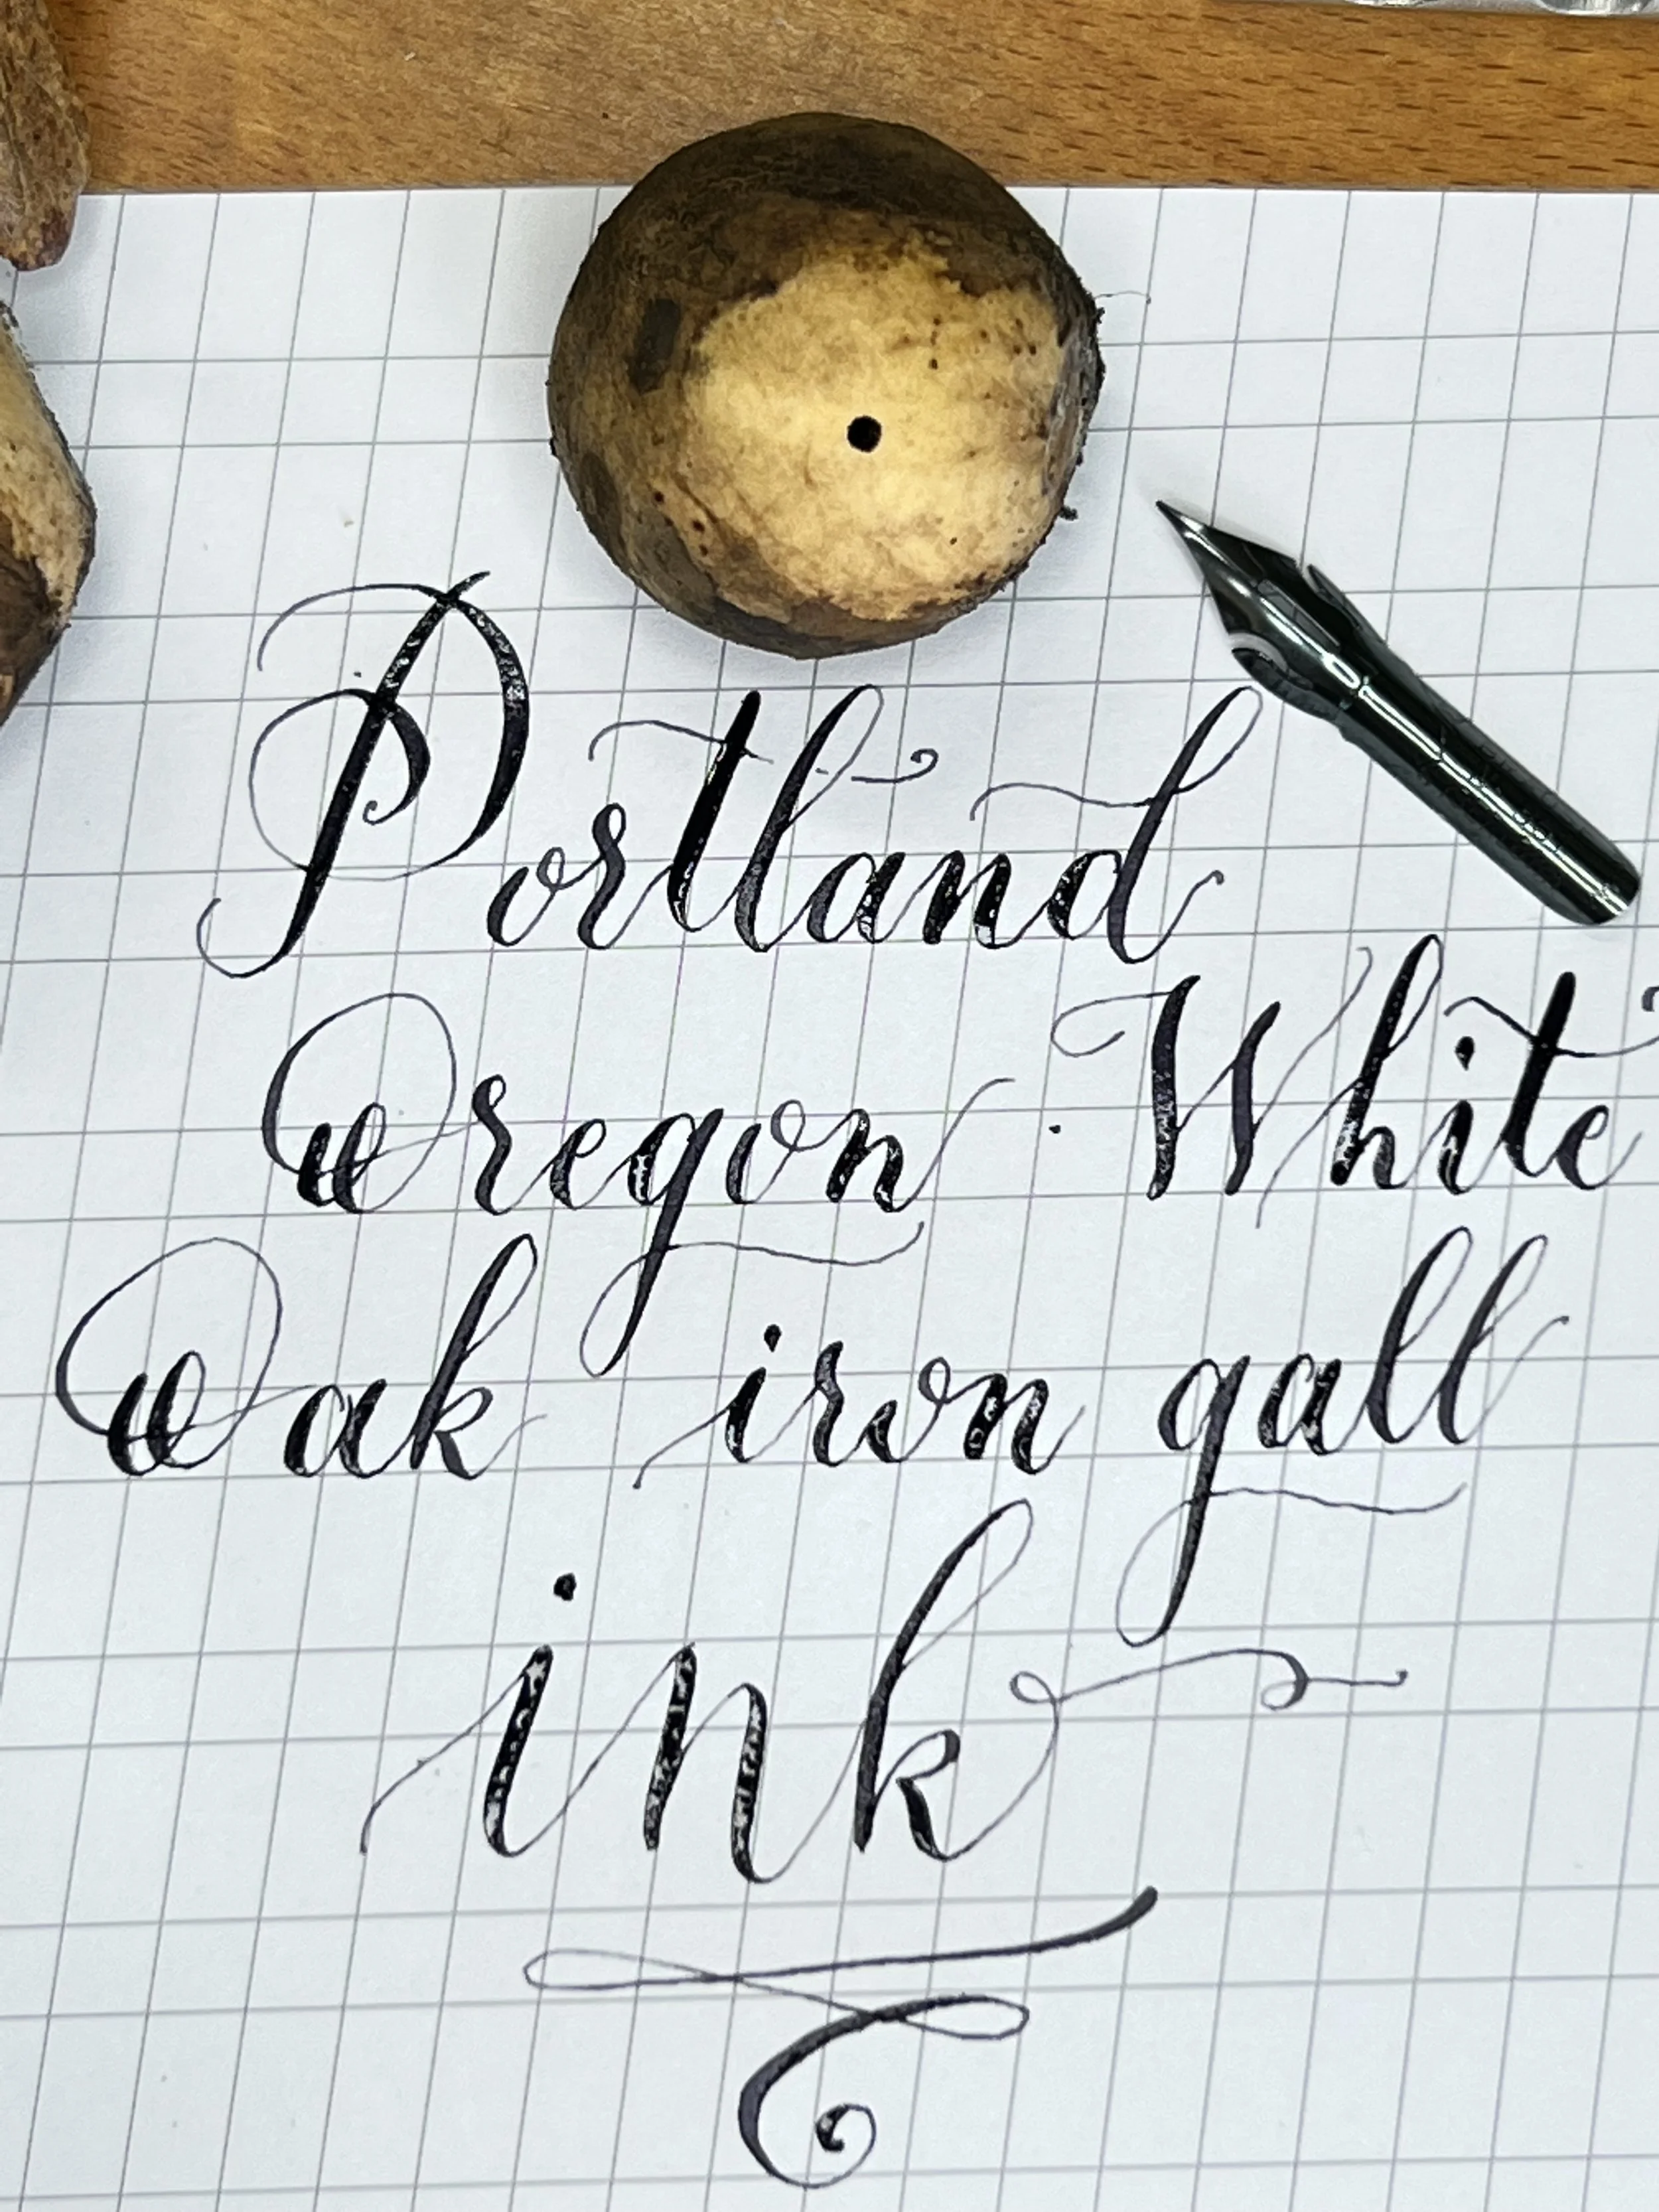 Portland
Oregon. White
Oak iron gall
ink